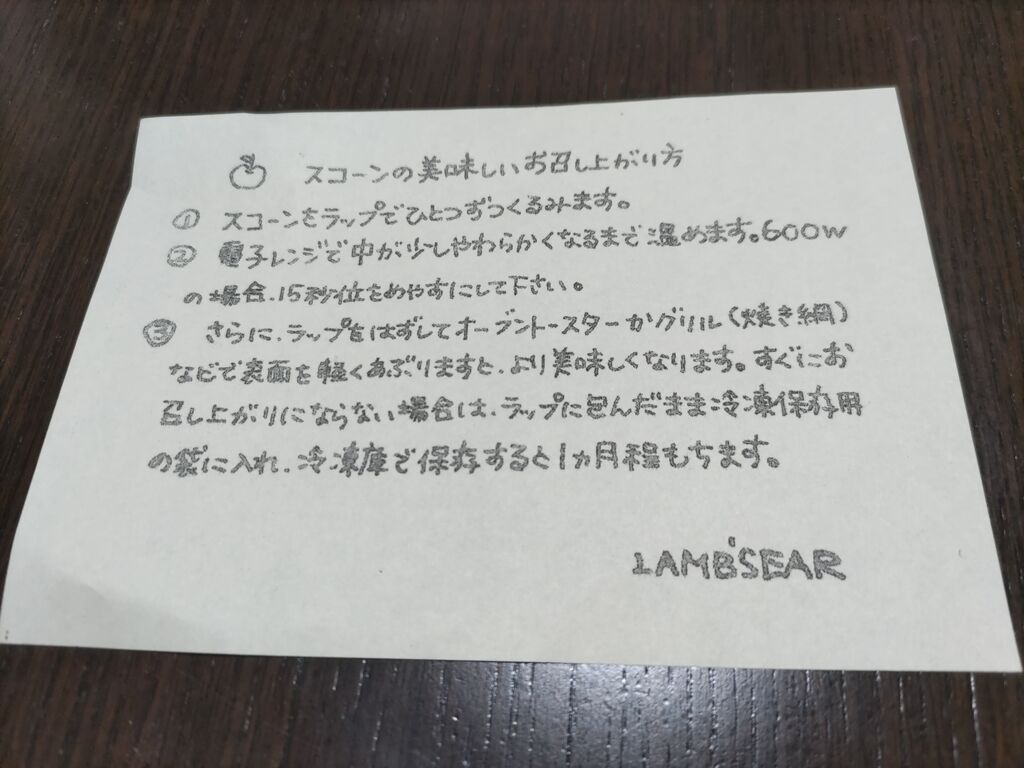 スコーンの美味しいお召し上がり方
① スコーンをラップでひとつずつくるみます。
② 電子レンジで中が少しやわらかくなるまで温めます。600w
の場合、15秒位をめやすにして下さい。
③ さらに、ラップをはずしてオーブントースターかグリル(焼き網)
などで表面を軽くあぶりますと、より美味しくなります。すぐにお
召し上がりにならない場合は、ラップに包んだまま冷凍保存用
の袋に入れ、冷凍庫で保存すると1ヵ月程もちます。
LAMB'SEAR